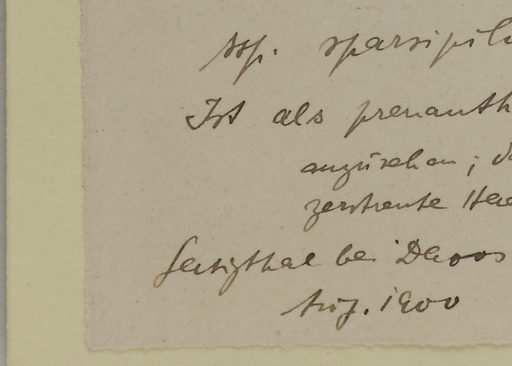 ssp. sparsipil
Ist als prenanth
anzusehen; d
zerstreute Haa
Sertigthal bei Davos
Aug. 1900